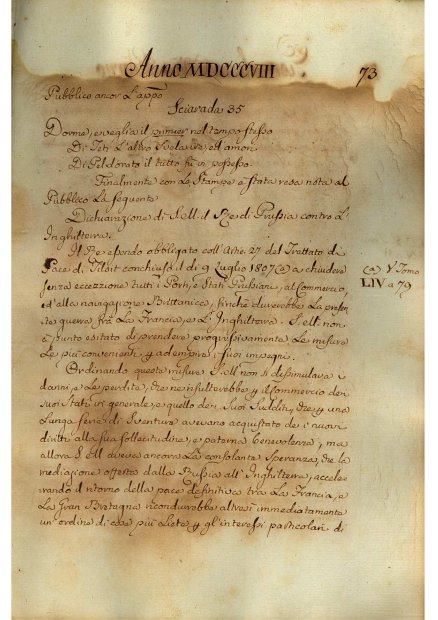 Anno MDCCCVIII
73
Pubblico ancor l'app.o
Sciarada 35
Dorme, e veglia il primier nel tempo stesso
Di Teti l'altro svela ire, ed amori
Di bel dorato il tutto fu in possesso.
Finalmente con le stampe è stata resa nota al
Pubblico la seguente
Dichiarazione di S. M. il Re di Prussia contro l'
Inghilterra.
Il Re essendo obbligato coll'Artic. 27 del Trattato di
Pace di Tilsit conchiuso il di 9 Luglio 1807 (a) a chiudere
senza eccezzione tutti i Porti, e Stati Prussiani, al Commercio,
ed alla navigazione Brittanica, finchè durerebbe la presen-
te guerra frà la Francia, e l'Inghilterra. S. M. non
à punto esitato di prendere progressivamente le misure
le più convenienti p adempire i suoi impegni.
Ordinando queste misure S. M. non si dissimulava i
danni, e le perdite, che ne risulterebbe p il Commercio dei
suoi Stati in generale, e quello dei Suoi Sudditi, che p una
lunga serie di sventure avevano acquistato de' nuovi
diritti alla sua sollecitudine, e paterna benevolenza, ma
allora S. M. aveva ancora la consolante Speranza, che la
mediazione offerta dalla Russia all'Inghilterra, accele-
rando il ritorno della pace definitiva tra la Francia, e
la Gran Bretagna ricondurebbe altresì immediatamente
un'ordine di cose più liete p gl'interessi particolari di
(a) V Tomo
LIV a 79